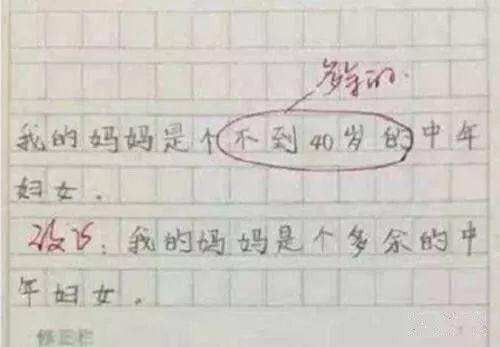 多余的.
我的妈妈是个不到40岁的中年
妇女.
改正:我的妈妈是个多余的中
年妇女.
修正栏